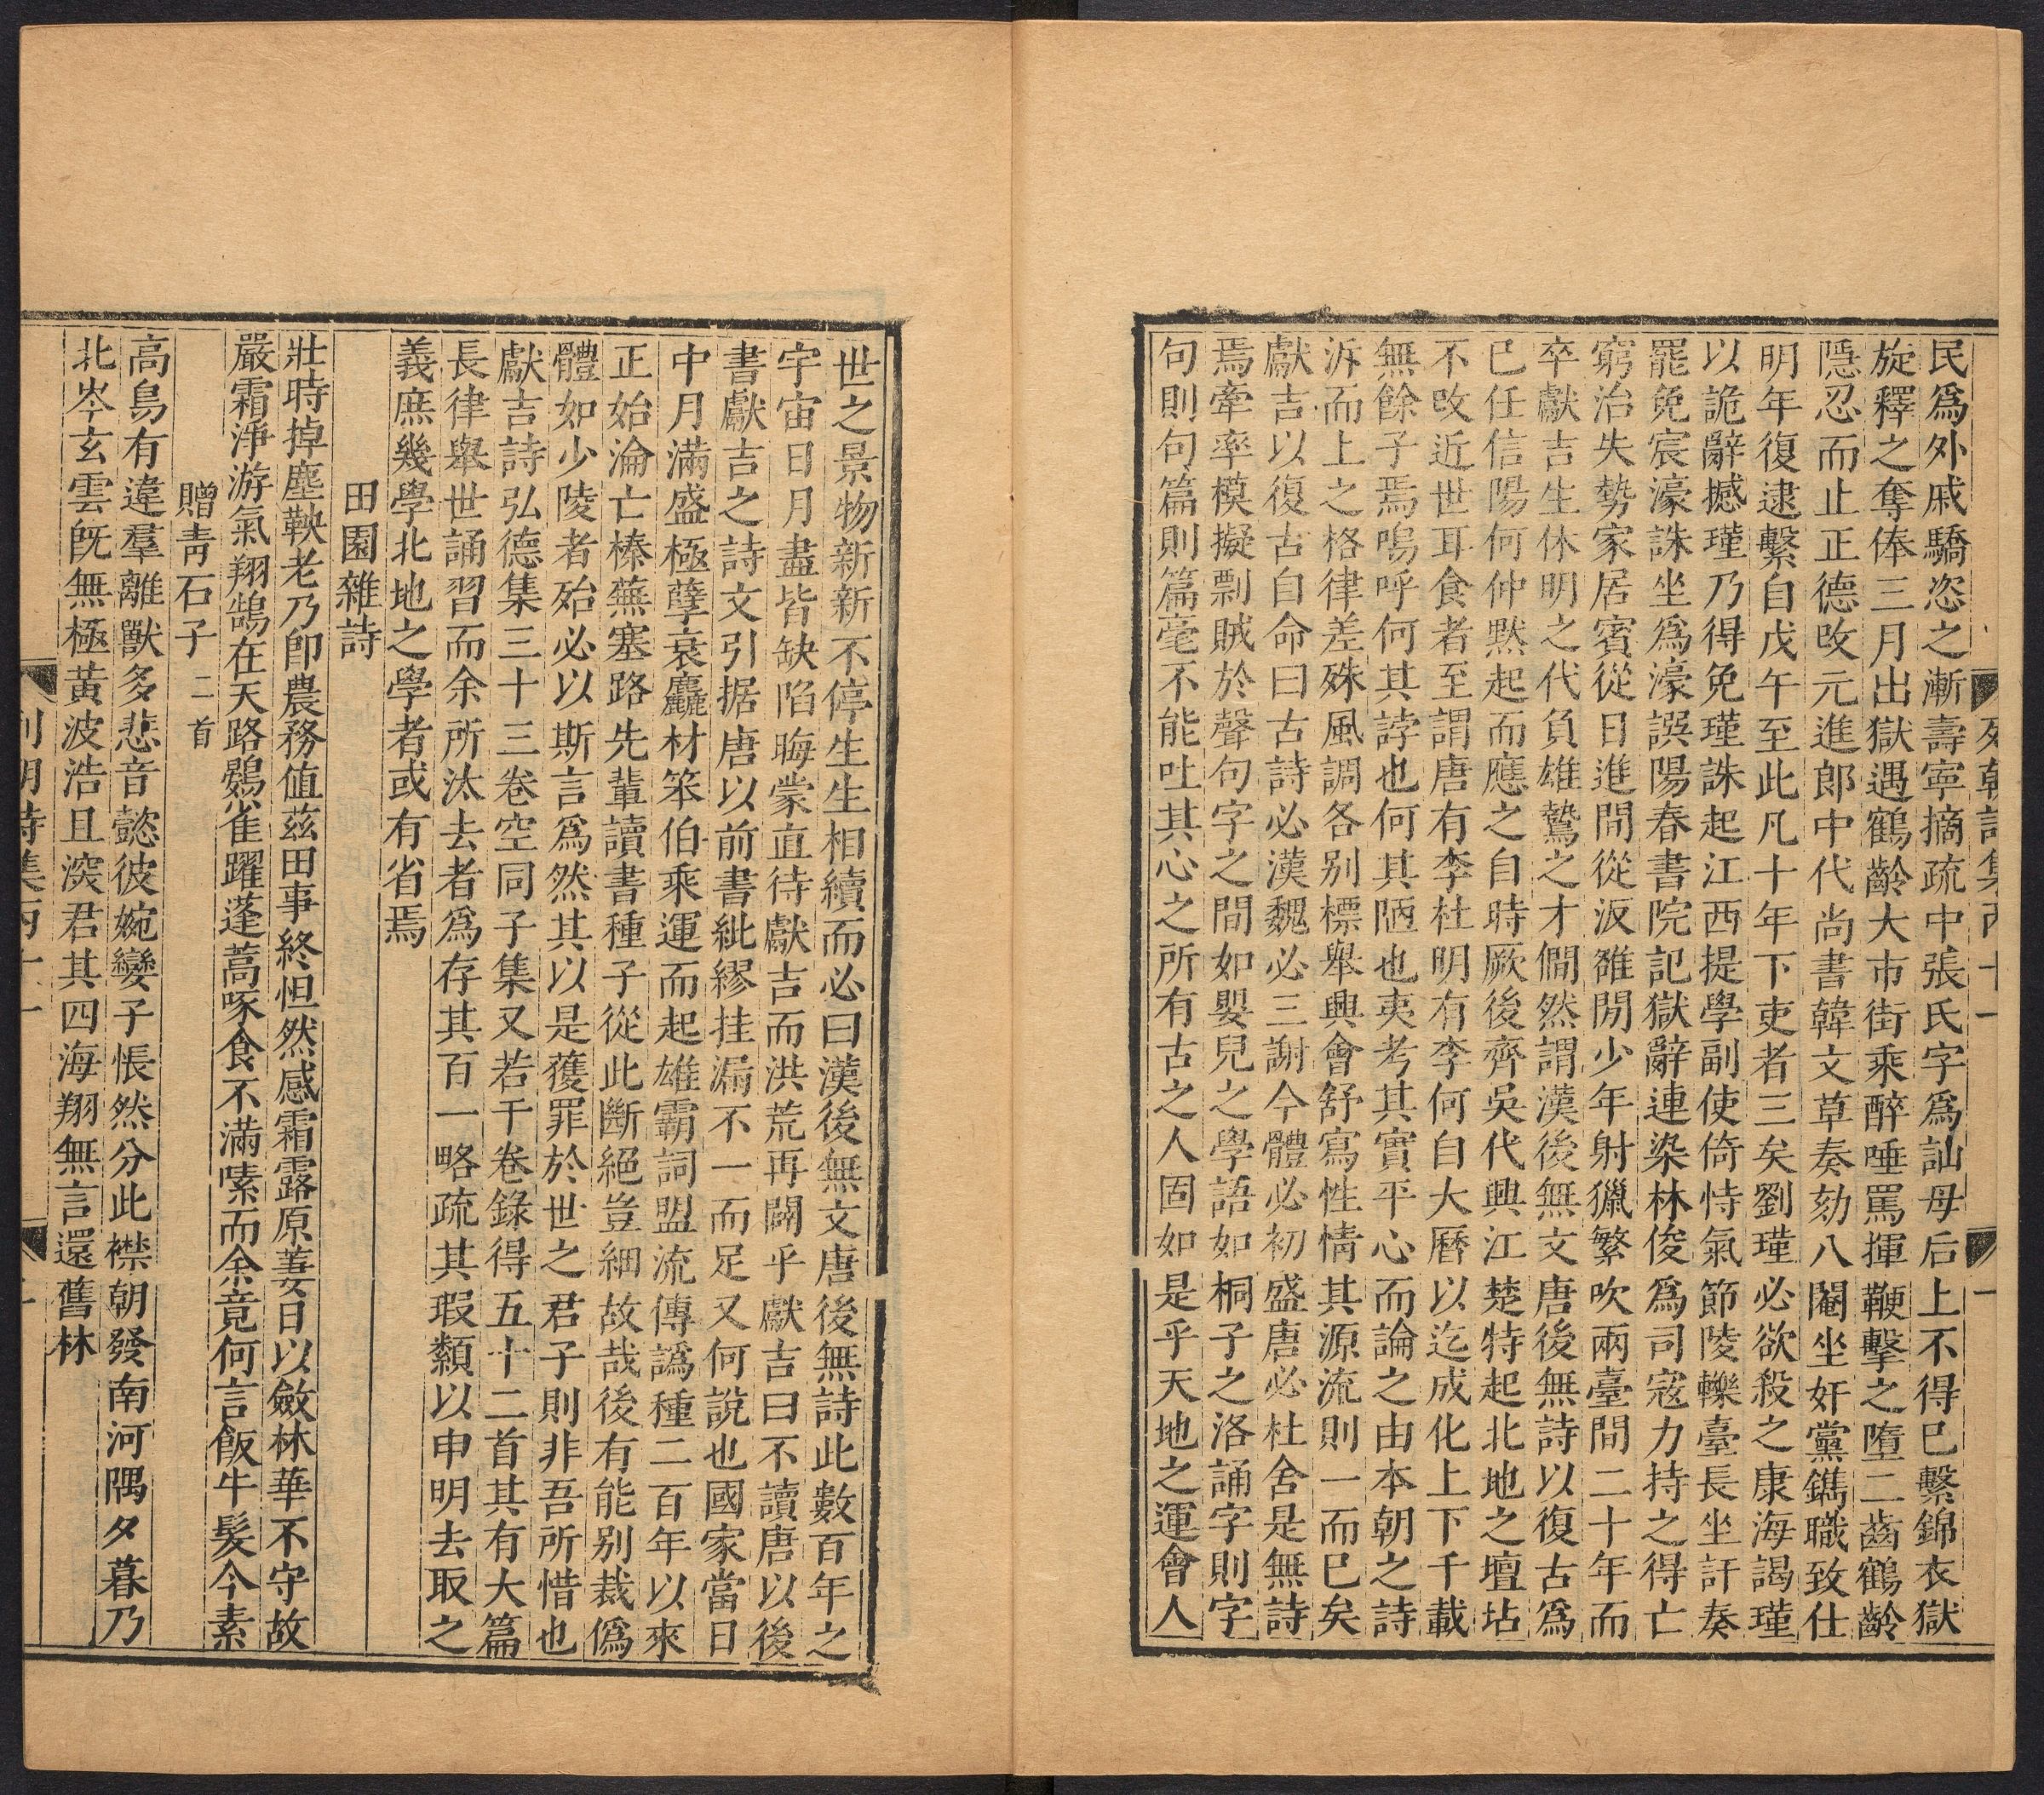 列朝詩集丙十一
一
民爲外戚驕恣之漸壽寧摘疏中張氏字爲訕母后上不得已繫錦衣獄
旋釋之奪俸三月出獄遇鶴齡大市街乘醉唾罵揮鞭擊之墮二齒鶴齡
隱忍而止正德改元進郎中代尚書韓文草奏劾八閹坐奸黨鐫職致仕
明年復逮繫自戊午至此凡十年下吏者三矣劉瑾必欲殺之康海謁瑾
以詭辭撼瑾乃得免瑾誅起江西提學副使倚恃氣節陵轢臺長坐訐奏
罷免宸濠誅坐爲濠誤陽春書院記獄辭連染林俊爲司寇力持之得亡
窮治失勢家居賓從日進間從汳雒間少年射獵繁吹兩臺間二十年而
卒獻吉生休明之代負雄鷙之才僩然謂漢後無文唐後無詩以復古爲
已任信陽何仲默起而應之自時厥後齊吳代興江楚特起北地之壇坫
不攺近世耳食者至謂唐有李杜明有李何自大曆以迄成化上下千載
無餘子焉嗚呼何其誖也何其陋也夷考其實平心而論之由本朝之詩
泝而上之格律差殊風調各别標舉興會舒寫性情其源流則一而巳矣
獻吉以復古自命曰古詩必漢魏必三謝今體必初盛唐必杜舍是無詩
焉牽率模擬剽賊於聲句字之間如嬰兒之學語如桐子之洛誦字則字
句則句篇則篇毫不能吐其心之所有古之人固如是乎天地之運會人
世之景物新新不停生生相續而必曰漢後無文唐後無詩此數百年之
宇宙日月盡皆缺陷晦蒙直待獻吉而洪荒再闢乎獻吉曰不讀唐以後
書獻吉之詩文引据唐以前書紕繆挂漏不一而足又何說也國家當日
中月滿盛極孽衰麤材笨伯乘運而起雄霸詞盟流傳譌種二百年以來
正始淪亡榛蕪塞路先輩讀書種子從此斷絕豈細故哉後有能别裁僞
體如少陵者殆必以斯言爲然其以是獲罪於世之君子則非吾所惜也
獻吉詩弘德集三十三卷空同子集又若干卷錄得五十二首其有大篇
長律舉世誦習而余所汰去者爲存其百一略疏其瑕纇以申明去取之
義庶幾學北地之學者或有省焉
田園雜詩
壯時掉塵鞅老乃卽農務値茲田事終怛然感霜露原萋日以斂林華不守故
嚴霜淨游氣翔鵠在天路鷃雀躍蓬蒿啄食不滿嗉而余竟何言飯牛髮今素
贈靑石子二首
高鳥有違羣離獸多悲音懿彼婉孌子悵然分此襟朝發南河隅夕暮乃
北岑玄雲旣無極黃波浩且深君其四海翔無言還舊林
列朝詩集丙十一